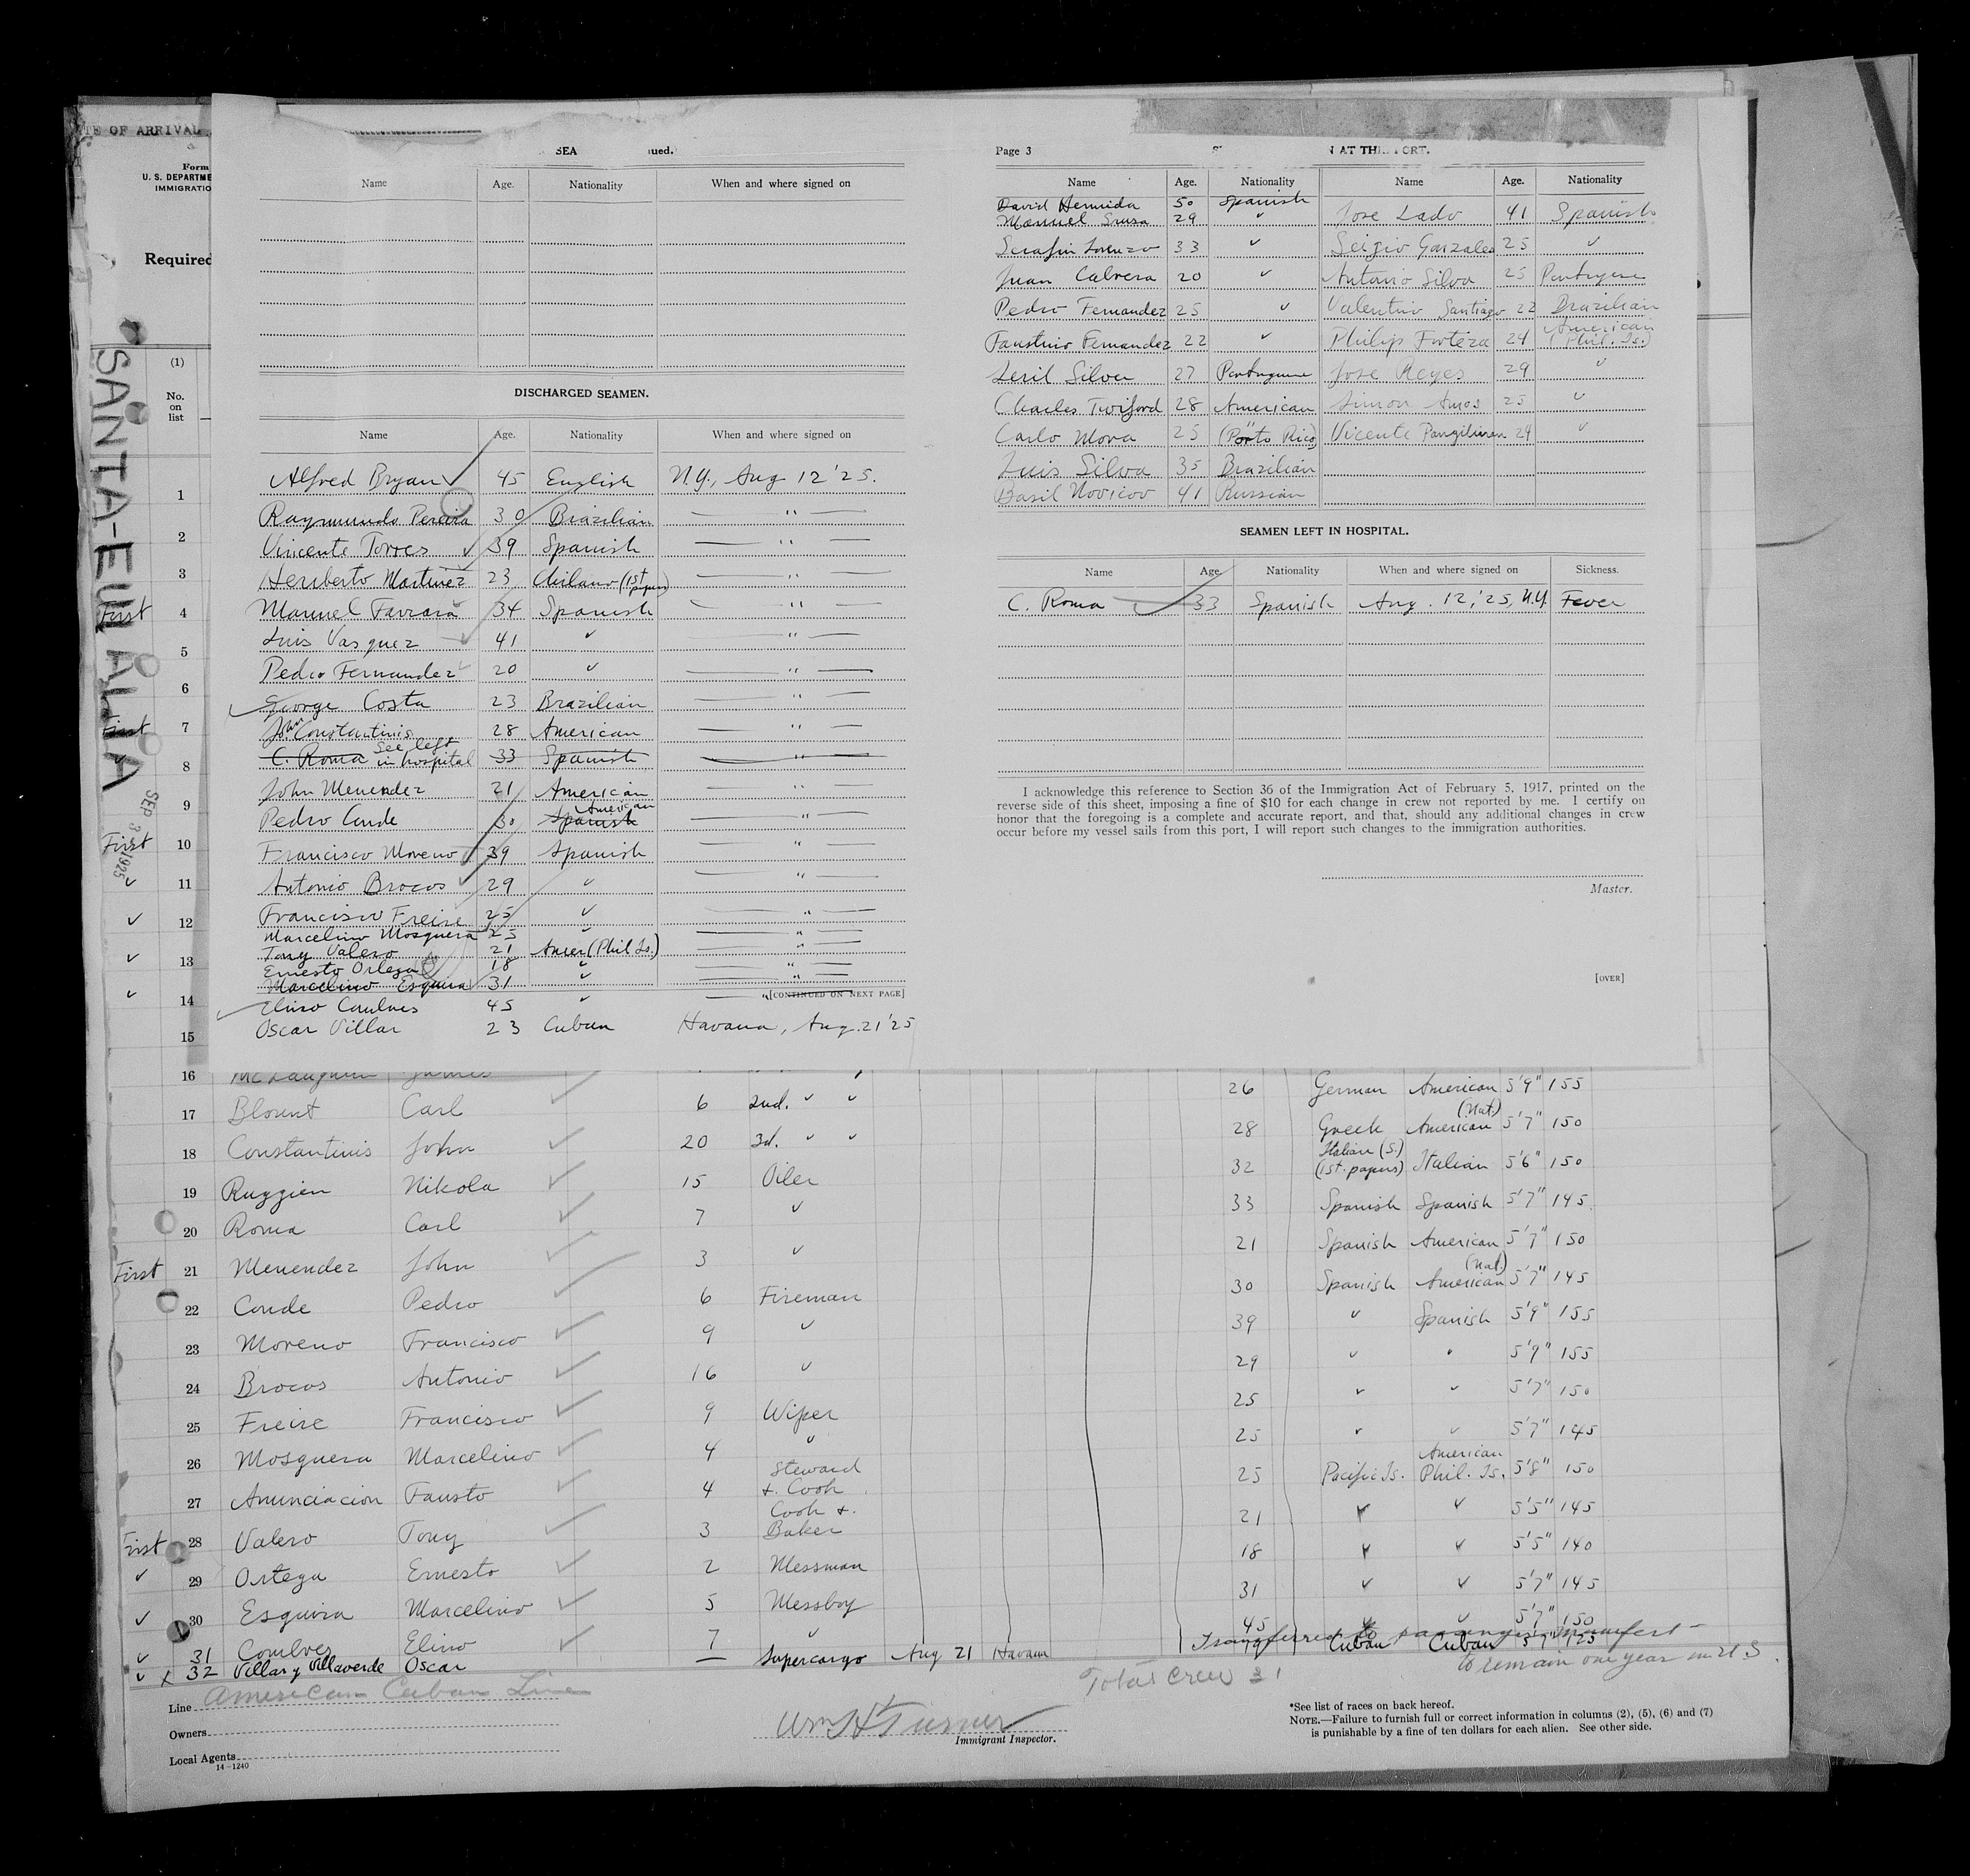 TE OF ARRIVAL
Form
U. S. DEPARTME
IMMIGRATIO
Required
(1)
No.
on
list
SANTA-EULALIA
SEP 3 1925
SEA ued.
Name Age. Nationality When and where signed on
DISCHARGED SEAMEN.
Name Age. Nationality When and where signed on
1 Alfred Bryan 45 English N.Y., Aug 12 '25.
Raymundo Pereira 30 Brazilian — " —
2 Vincente Torres 39 Spanish — " —
3 Heriberto Martinez 23 Chilano (1st papers) — " —
First 4 Manuel Farrara 34 Spanish — " —
5 Luis Vasquez 41 " — " —
6 Pedro Fernandez 20 " — " —
George Costa 23 Brazilian — " —
First 7 John Constantinis 28 American — " —
8 C. Roma See left in hospital 33 Spanish — " —
9 John Menendez 21 American — " —
Pedro Conde 30 Spanish American — " —
First 10 Francisco Moreno 39 Spanish — " —
11 Antonio Brocos 29 " — " —
12 Francisco Freire 25 " — " —
Marcelino Mosquera 25 " — " —
13 Tony Valero 21 Amer (Phil Is.) — " —
Ernesto Ortega 18 " — " —
Marcelino Esquira 31 " — " —
[CONTINUED ON NEXT PAGE]
14 Elino Comlves 45 "
15 Oscar Villar 23 Cuban Havana, Aug. 21 '25
Page 3 N AT THI ORT.
Name Age. Nationality Name Age. Nationality
David Hermida 50 Spanish
Manuel Sousa 29 " Jose Lado 41 Spanish
Serafin Lorenzo 33 " Sergio Gonzales 25 "
Juan Cabrera 20 " Antonio Silva 25 Portugese
Pedro Fernandez 25 " Valentino Santiago 22 Brazilian
Faustino Fernandez 22 " Philip Forteza 24 American (Phil. Is.)
Silva 27 Portuguese Jose Reyes 29 "
Charles Twiford 28 American Simon Amos 25 "
Carlo Mora 25 " (Porto Rico) Vicente Pangilinan 24 "
Luis Silva 35 Brazilian
Basil Novicov 41 Russian
SEAMEN LEFT IN HOSPITAL.
Name Age. Nationality When and where signed on Sickness.
C. Roma 33 Spanish Aug. 12, '25, N.Y. Fever
I acknowledge this reference to Section 36 of the Immigration Act of February 5, 1917, printed on the
reverse side of this sheet, imposing a fine of $10 for each change in crew not reported by me. I certify on
honor that the foregoing is a complete and accurate report, and that, should any additional changes in crew
occur before my vessel sails from this port, I will report such changes to the immigration authorities.
Master.
[OVER]
16 McLaughlin James
17 Blount Carl 6 2nd. " " 26 German American 5'9" 155
18 Constantinis John 20 3d. " " 28 Greek American (Nat.) 5'7" 150
19 Ruggieri Nikola 15 Oiler 32 Italian (S.) (1st. papers) Italian 5'6" 150
20 Roma Carl 7 " 33 Spanish Spanish 5'7" 145
First 21 Menendez John 3 " 21 Spanish American 5'7" 150
22 Conde Pedro 6 Fireman 30 Spanish American (Nat.) 5'7" 145
23 Moreno Francisco 9 " 39 " Spanish 5'9" 155
24 Brocos Antonio 16 " 29 " " 5'9" 155
25 Freire Francisco 9 Wiper 25 " " 5'7" 150
26 Mosquera Marcelino 4 " 25 " " 5'7" 145
27 Anunciacion Fausto 4 Steward & Cook 25 Pacific Is. American Phil. Is. 5'8" 150
First 28 Valero Tony 3 Cook & Baker 21 " " 5'5" 145
29 Ortega Ernesto 2 Messman 18 " " 5'5" 140
30 Esquira Marcelino 5 Messboy 31 " " 5'7" 145
31 Comlves Elino 7 " 45 " " 5'7" 150
x 32 Villar y Villaverde Oscar — Supercargo Aug 21 Havana Cuban Cuban 5'7" 125
Transferred to passenger manifest —
to remain one year in U.S.
Total Crew 31
Line American Cuban Line
Owners
Local Agents
14-1240
Wm H Turner
Immigrant Inspector.
*See list of races on back hereof.
NOTE.—Failure to furnish full or correct information in columns (2), (5), (6) and (7)
is punishable by a fine of ten dollars for each alien. See other side.